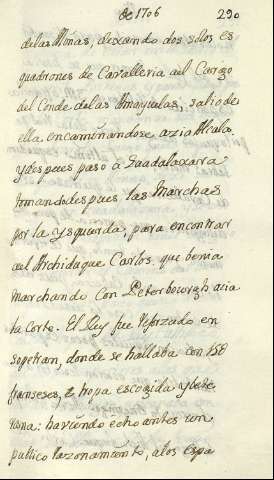 de 1706 290
de las Minas, dexando dos solos es
quadrones de Cavalleria al Cargo
del Conde de las Amayuelas, salio de
ella encaminandose azia Alcala,
y despues paso à Guadalaxara
tomando despues las Marchas
por la ysquierda, para encontrar
al Archiduque Carlos, que benia
marchando con Peterbourgh acia
la Corte. El Rey fue reforzado en
sopetran, donde se hallaba con 158
franseses, tropa escogida y bete
rana: haviendo echo antes un
publico razonamiento, a los espa